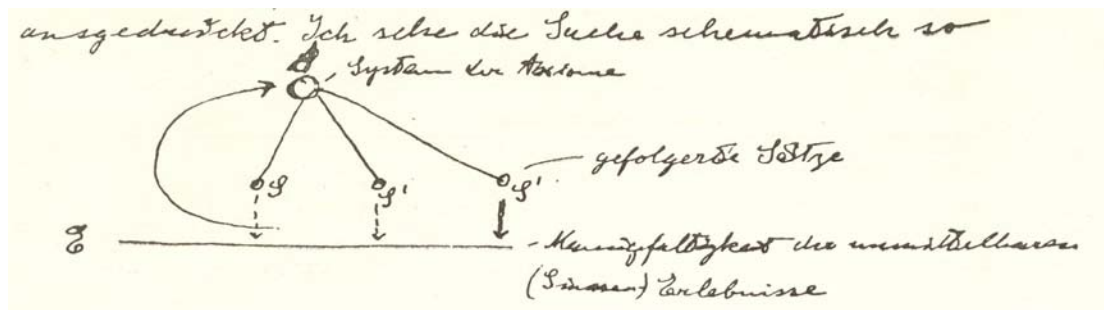 ausgedrückt. Ich sehe die Sache schematisch so
System der Axiome
gefolgerte Sätze
S S' S'
E - Mannigfaltigkeit der unmittelbaren
(Sinnes) Erlebnisse